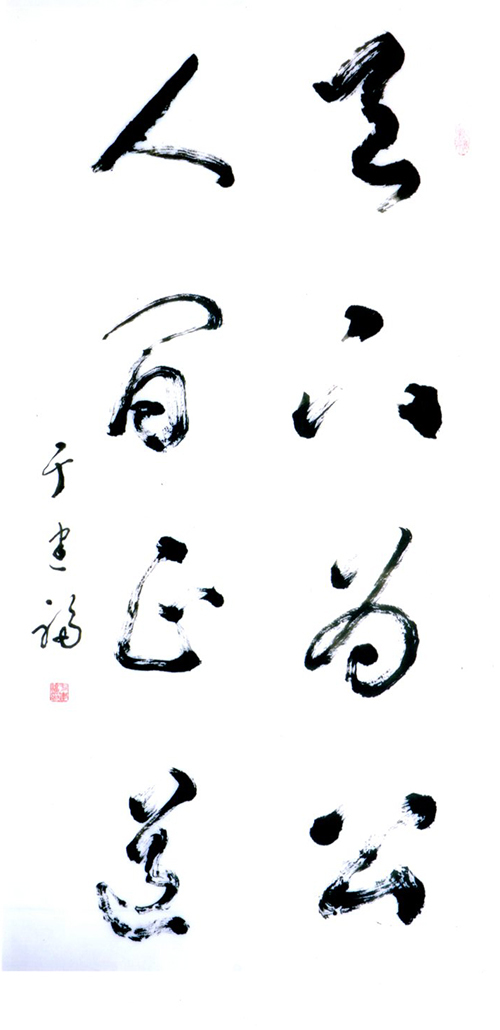 天下为公
人间正道
于建福